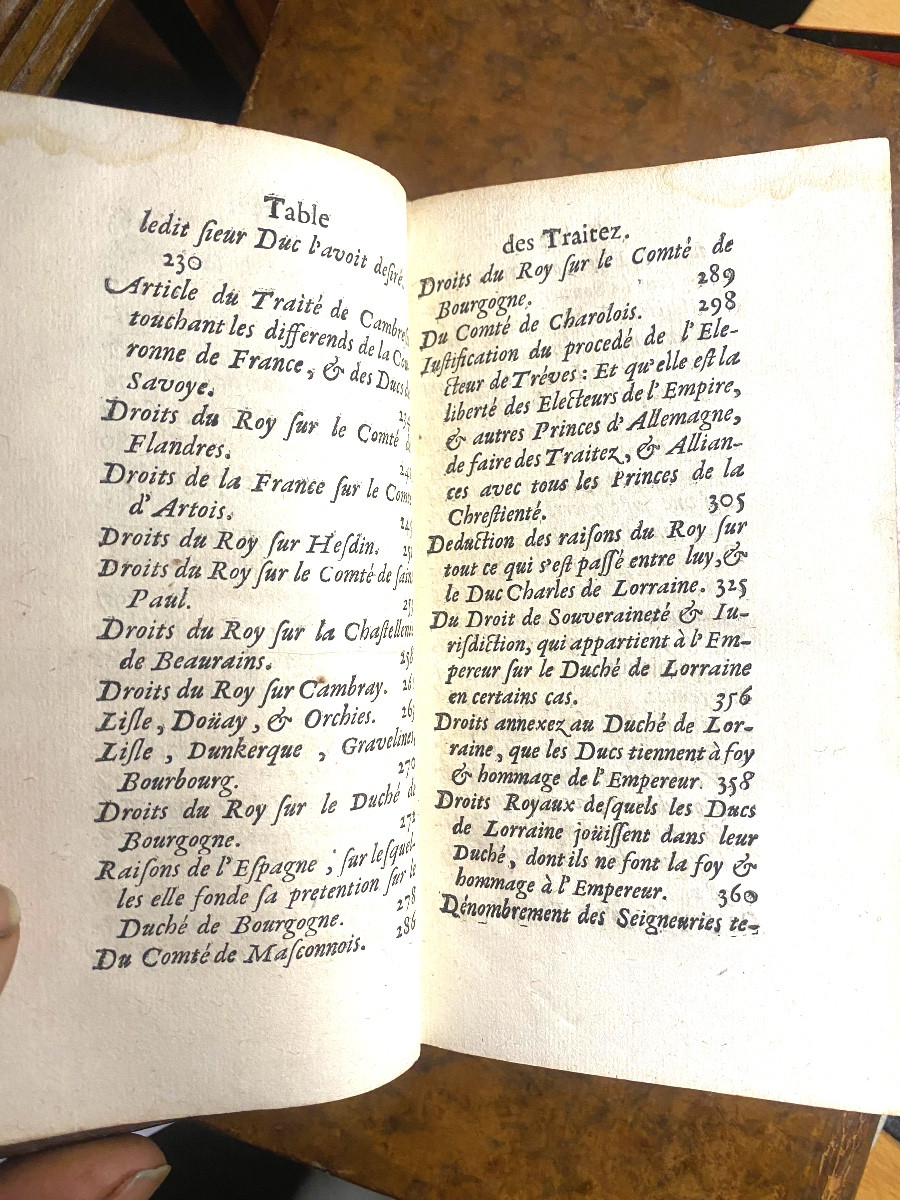 Table
ledit ſieur Duc l'avoit deſiré.
230
Article du Traité de Cambreſ
touchant les differends de la Cou
ronne de France, & des Ducs d
Savoye.
Droits du Roy ſur le Comté d
Flandres.
Droits de la France ſur le Com
d'Artois.
Droits du Roy ſur Heſdin.
Droits du Roy ſur le Comté de ſain
Paul.
Droits du Roy ſur la Chaſtellen
de Beaurains. 258
Droits du Roy ſur Cambray.
Liſle, Doüay, & Orchies.
Liſle, Dunkerque, Gravelines,
Bourbourg. 270
Droits du Roy ſur le Duché de
Bourgogne. 272
Raiſons de l'Eſpagne, ſur leſquel-
les elle fonde ſa pretention ſur le
Duché de Bourgogne. 278
Du Comté de Maſconnois. 286
des Traitez.
Droits du Roy ſur le Comté de
Bourgogne. 289
Du Comté de Charolois. 298
Iuſtification du procedé de l'Ele-
cteur de Tréves: Et qu'elle eſt la
liberté des Electeurs de l'Empire,
& autres Princes d'Allemagne,
de faire des Traitez, & Allian-
ces avec tous les Princes de la
Chreſtienté. 305
Deduction des raiſons du Roy ſur
tout ce qui s'eſt paſſé entre luy, &
le Duc Charles de Lorraine. 325
Du Droit de Souveraineté & Iu-
riſdiction, qui appartient à l'Em-
pereur ſur le Duché de Lorraine
en certains cas. 356
Droits annexez au Duché de Lor-
raine, que les Ducs tiennent à foy
& hommage de l'Empereur. 358
Droits Royaux deſquels les Ducs
de Lorraine joüiſſent dans leur
Duché, dont ils ne font la foy &
hommage à l'Empereur. 360
Dénombrement des Seigneuries te-